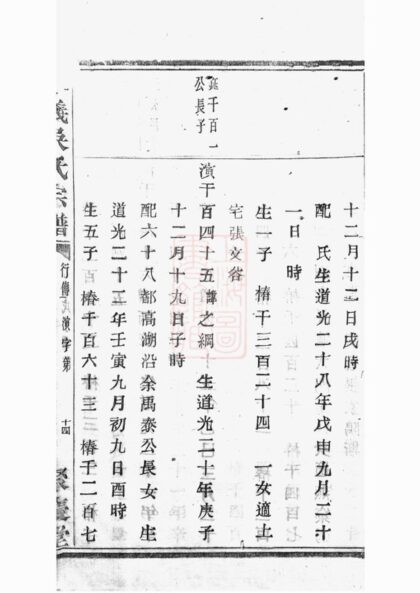 十二月十二日戌時
配 氏生道光二十八年戊申九月二十
一日 時
生一子 椿千三百二十四 一女適上
宅張文
公長子
演千百四十五諱之綱 生道光二十年庚子
十二月十九日子時
配六十八都高湖沿余禹泰公長女年生
道光二十二年壬寅九月初九日酉時
生五子 椿千百六十三 椿千二百七
吳氏宗譜
行傳
演字第
十四
堂